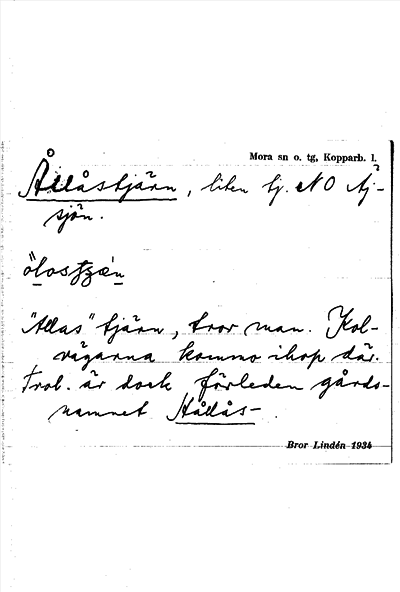 Mora sn o. tg, Kopparb. l.
Ållåstjärn, liten tj. NO Aj-
sjön.
"Allas" tjärn, tror man. Kol-
vägarna kommo ihop där.
Trol. är dock förleden gårds-
namnet Hållås-.
Bror Lindén 1934